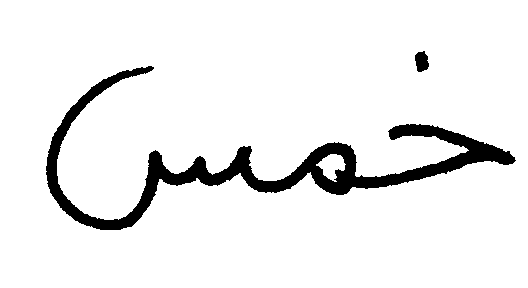 خمس